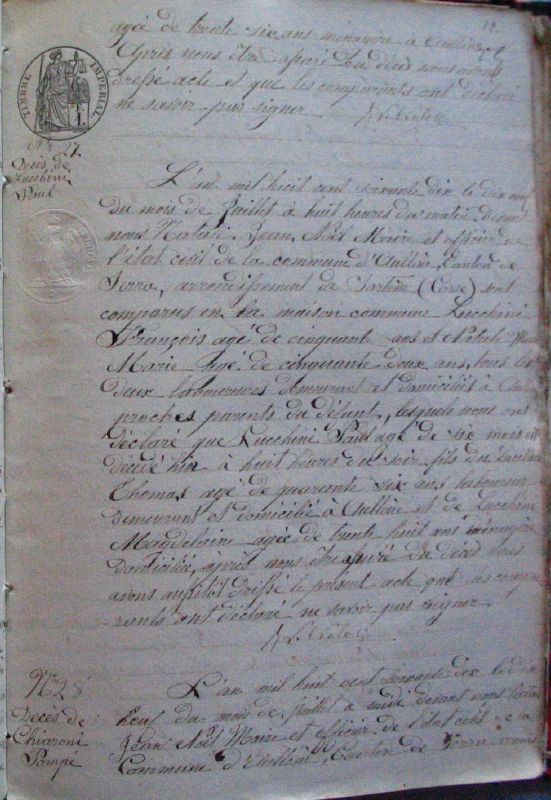 12.
agée de trente six ans ménagère à Aullène
Après nous être assuré du décès nous avons
dressé acte et que les comparants ont déclaré
ne savoir pas signer
TIMBRE IMPÉRIAL
No 27
Decès de
Lucchini
Paul
L'an mil huit cent soixante dix le dix
du mois de Juillet à huit heures du matin devant
nous Natali Jean Noël Maire et officier de
l'état civil de la commune d'Aullène, Canton de
Serra, arrondissement de Sartène (Corse) sont
comparus en la maison commune Lucchini
François agé de cinquante ans et Natali
Marie agé de cinquante deux ans, tous les
deux laboureurs demeurant et domiciliés à
proches parents du défunt, lesquels nous ont
déclaré que Lucchini Paul agé de six mois est
décédé hier à huit heures du soir fils du Lucchini
Thomas agé de quarante six ans laboureur
demeurant et domicilié à Aullène et de Lucchini
Magdeleine agée de trente huit ans ménagère
domiciliée, après nous être assuré du décès nous
avons aussitôt dressé le présent acte que les compa
rants ont déclaré ne savoir pas signer
No 28
Decès de
Chiaroni
Pompé
L'an mil huit cent soixante dix le dix
heuf du mois de Juillet à midi devant nous Natali
Jean Noël Maire et officier de l'état civil de la
Commune d'Aullène, Canton de Serra